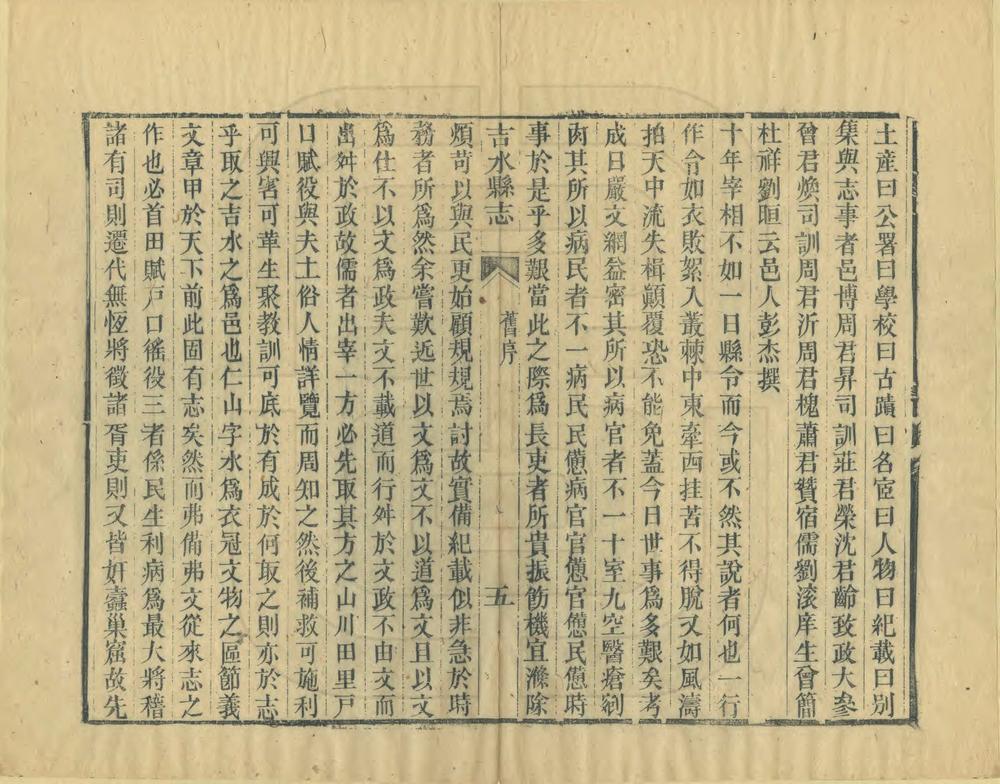 土産曰公署曰學校曰古蹟曰名宦曰人物曰紀載曰別
集與志事者邑博周君昇司訓莊君榮沈君齡致政大參
曾君煥司訓周君沂周君槐蕭君贊宿儒劉滾庠生曾簡
杜祥劉晅云邑人彭杰撰
十年宰相不如一日縣令而今或不然其說者何也一行
作令如衣敗絮入叢棘中東牽西挂苦不得脫又如風濤
拍天中流失楫顛覆恐不能免蓋今日世事爲多艱矣考
成日嚴文網益密其所以病官者不一十室九空醫瘡剜
肉其所以病民者不一病民民憊病官官憊官憊民憊時
事於是乎多艱當此之際爲長吏者所貴振飭機宜滌除
吉水縣志
舊序
五
煩苛以與民更始顧規規焉討故實備紀載似非急於時
務者所爲然余嘗歎近世以文爲文不以道爲文且以文
爲仕不以文爲政夫文不載道而行舛於文政不由文而
出舛於政故儒者出宰一方必先取其方之山川田里戸
口賦役與夫土俗人情詳覽而周知之然後補救可施利
可興害可革生聚教訓可底於有成於何取之則亦於志
乎取之吉水之爲邑也仁山字水爲衣冠文物之區節義
文章甲於天下前此固有志矣然而弗備弗文從來志之
作也必首田賦戸口徭役三者係民生利病爲最大將稽
諸有司則遷代無恆將徵諸胥吏則又皆奸蠧巢窟故先